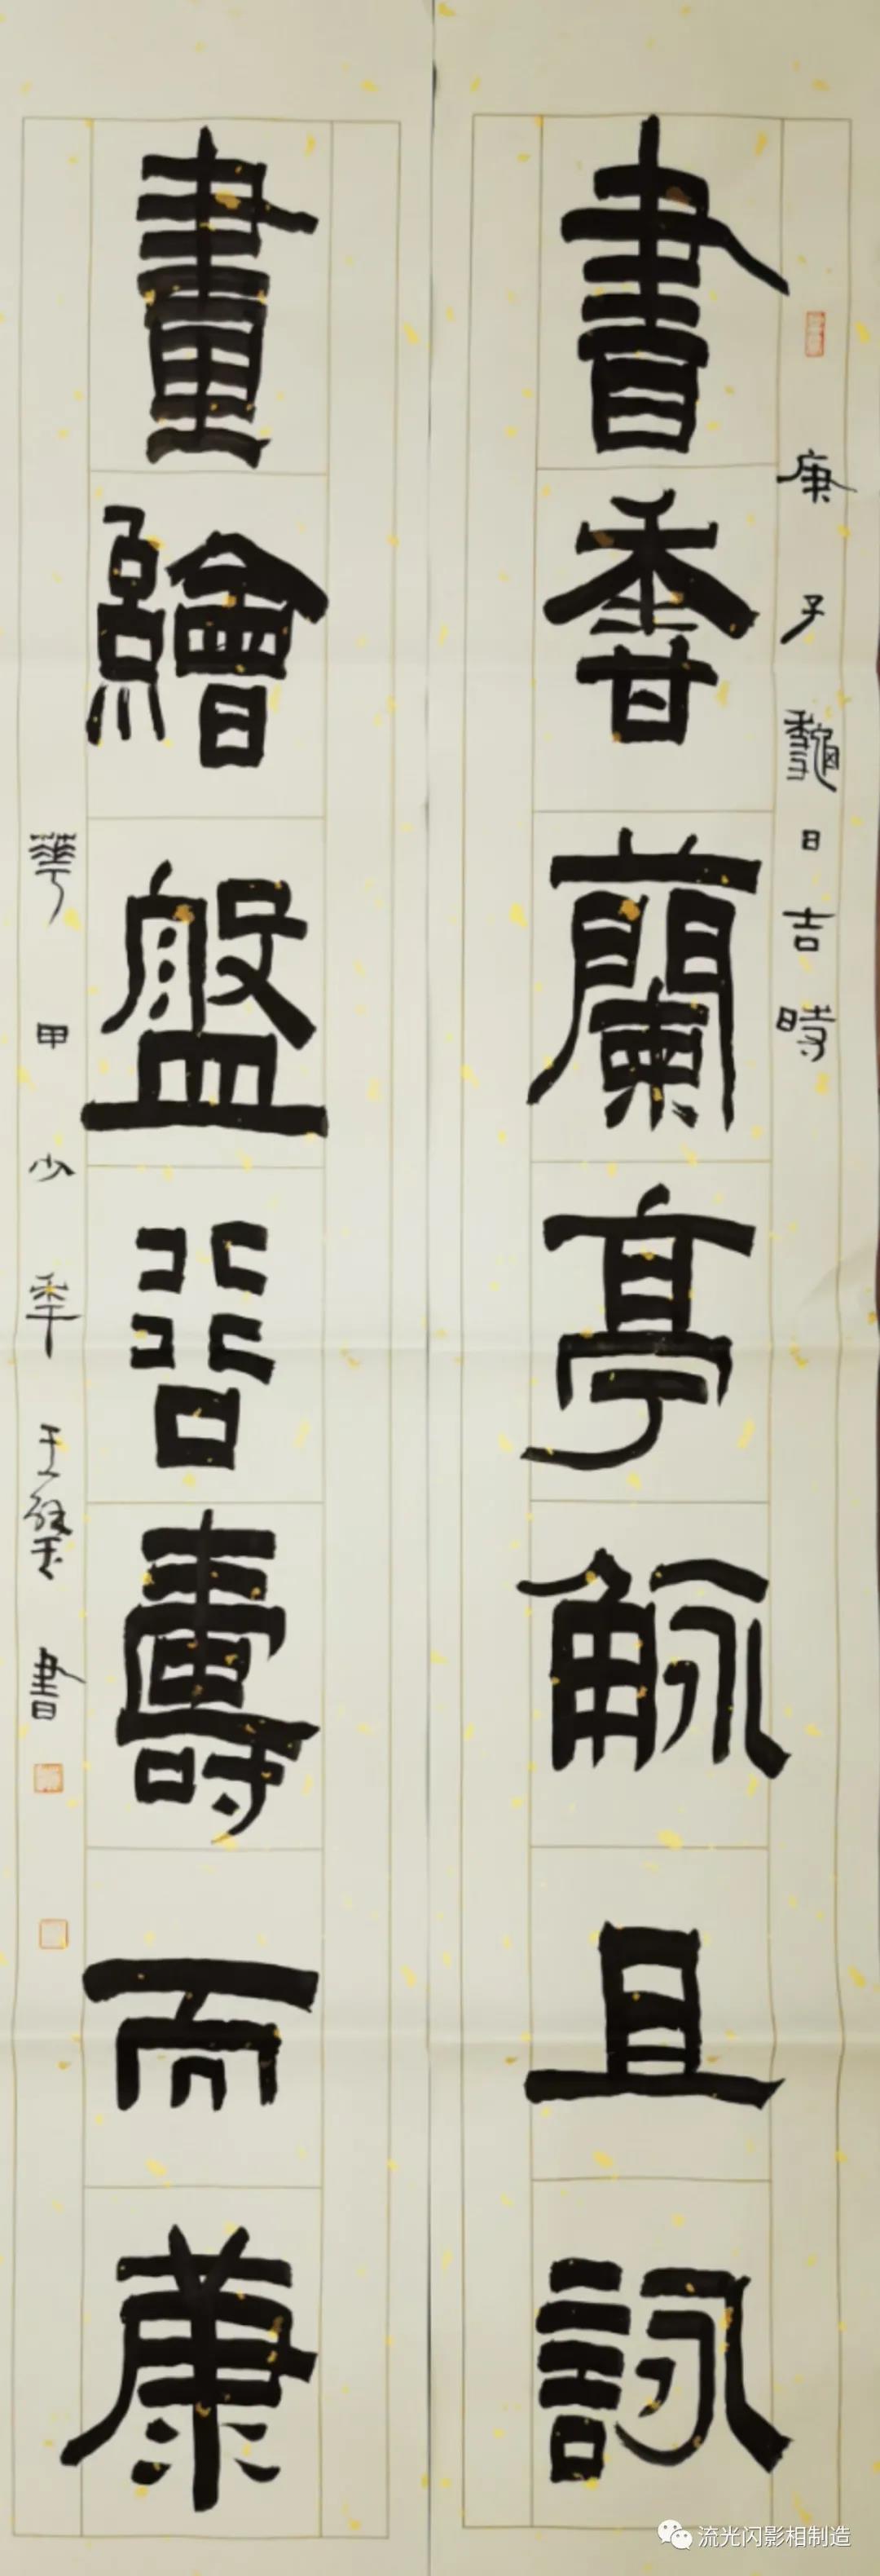 書香蘭亭觚且詠
庚子龝日吉時
畫繪盤谷壽而康
華甲少年王書
流光闪影相制造